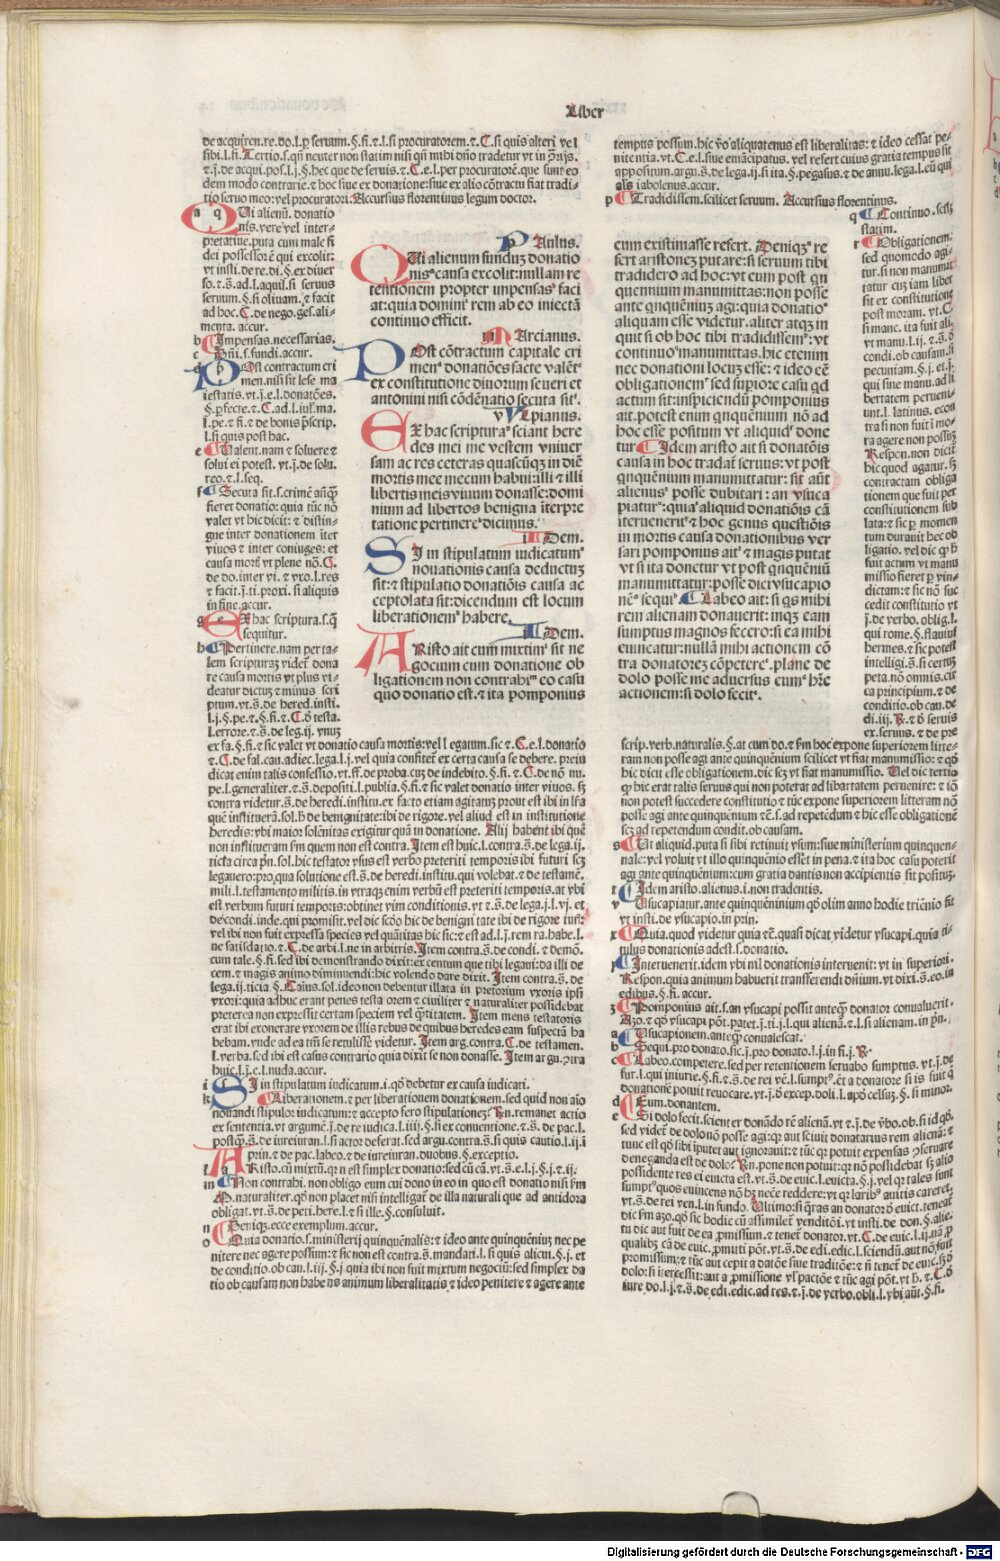 Liber
de acquiren. re. do. l. ꝑ seruum. §. fi. ⁊ l. si procuratorem. ⁊. C. si quis alteri vel
sibi. l. fi. Tertio. s. qñ neuter non statim nisi qñ mihi dño tradetur vt in
⁊. j. de acqui. pos. l. j. §. hec que de seruis. ⁊. C. e. l. per procuratorē. que sunt eo
dem modo contrarie. ⁊ hoc siue ex donatione: siue ex alio cōtractu fiat tradi-
tio seruo meo: vel procuratori. Accursius florentinus legum doctor.
Qui alienū. donatio
nis. vere vel inter-
pretatiue. puta cum male fi
dei possessorē qui excolit:
vt insti. de re. di. §. ex diuer
so. ⁊. s. ad. l. aquil. si seruus
seruum. §. si oliuam. ⁊ facit
ad hoc. C. de nego. ges. ali-
menta. accur.
b Impensas. necessarias.
c Dñi. s. fundi. accur.
Post contractum cri
men. nisi sit lese ma
iestatis. vt. j. e. l. donatōes.
§. ꝑfecte. ⁊. C. ad. l. iul. ma.
l. pe. ⁊ fi. ⁊ de bonis ꝓscrip.
l. si quis post hac.
e Valent. nam ⁊ soluere ⁊
solui ei potest. vt. j. de solu.
reo. ⁊. l. seq.
f Secuta sit. s. crimē añꝗ̃
fieret donatio: quia tūc nō
valet vt hic dicit: ⁊ distin-
gue inter donationem iter
viuos ⁊ inter coniuges: et
causa mort vt plene nō. C.
de do. inter vi. ⁊ vxo. l. res
⁊ facit. j. ti. proxi. si aliquis
in fine. accur.
g Ex hac scriptura. s. ꝗ̃
sequitur.
h Pertinere. nam per ta-
lem scripturaꝫ videt dona
re causa mortis vt plus vi-
deatur dictuꝫ ⁊ minus scri
ptum. vt. s. de hered. insti.
l. j. §. pe. ⁊. §. fi. ⁊. C. d testa.
l. errore. ⁊. s. de leg. ij. vnuꝫ
Paulus.
Qui alienum funduꝫ donatio
nis causa excolit: nullam re
tentionem propter impensas faci
at: quia domini rem ab eo iniectā
continuo efficit.
Marcianus.
Post cōtractum capitale cri
men donatiōes facte valēt
ex constitutione diuorum seueri et
antonini nisi cōdēnatio secuta sit.
Vlpianus.
Ex hac scriptura sciant here
des mei me vestem vniuer
sam ac res ceteras quascūqꝫ in diē
mortis mee mecum habui: illi ⁊ illi
libertis meis viuum donasse: domi
nium ad libertos benigna iterpre
tatione pertinere dicimus.
Idem.
Si in stipulatum iudicatum
nouationis causa deductuꝫ
sit: ⁊ stipulatio donatiōis causa ac
ceptolata sit: dicendum est locum
liberationem habere.
Idem.
Aristo ait cum mixtim sit ne
gocium cum donatione ob
ligationem non contrahi eo casu
quo donatio est. ⁊ ita pomponius
ex fa. §. fi. ⁊ sic valet vt donatio causa mortis: vel legatum. sic ⁊. C. e. l. donatio
⁊. C. de fal. cau. adiec. lega. l. j. vel qua confitet ex certa causa se debere. preiu
dicat enim talis confessio. vt. ff. de proba. cuꝫ de indebito. §. fi. ⁊. C. de nō nu.
pe. l. generaliter. ⁊. s. depositi. l. publia. §. fi. ⁊ sic valet donatio inter viuos. sꝫ
contra videtur. s. de heredi. institu. ex facto etiam agitatuꝫ prout est ibi in lra
que instituerā. sol. h de benignitate: ibi de rigore. vel aliud est in institutione
heredis: vbi maior solēnitas exigitur quā in donatione. Alij habent ibi que
non institueram fm quem non est contra. Item est huic. l. contra. s. de lega. ij.
ticia circa pn. sol. hic testator vsus est verbo preteriti temporis ibi futuri scꝫ
legauero: pro. qua solutione est. s. de heredi. institu. qui volebat. ⁊ de testamē.
mili. l. testamento militis. in vtraqꝫ enim verbū est preteriti temporis. at vbi
est verbum futuri temporis: obtinet vim conditionis. vt ⁊ s. de lega. j. l. vj. et
de condi. inde. qui promisit. vel dic scdo hic de benigni tate ibi de rigore iuris:
vel ibi non fuit expressa species vel quātitas hic sic: ⁊ est ad. l. j. rem ra. habe. l.
ne satisdatio. ⁊. C. de arbi. l. ne in arbitris. Item contra. s. de condi. ⁊ demō.
cum tale. §. fi. sed ibi demonstrando dixit: ex centum que tibi legaui: da illi de
cem. ⁊ magis animo diminuendi: hic volendo dare dixit. Item contra. s. de
lega. ij. ticia. §. Caius. sol. ideo non debentur illata in pretorium vxoris ipsi
vxori: quia adhuc erant penes testa orem ⁊ ciuiliter ⁊ naturaliter possidebat
preterea non expressit certam speciem vel ꝗ̃titatem. Item mens testatoris
erat ibi exonerare vxorem de illis rebus de quibus heredes eam suspectā ha
bebam. vnde ad ea tm se retulisse videtur. Item arg. contra. C. de testamen.
l. verba. sed ibi est casus contrario quia dixit se non donasse. Item argu. ꝯtra
huic. l. j. e. l. nuda. accur.
i Si in stipulatum iudicatum. i. qd debetur ex causa iudicati.
k Liberationem. ⁊ per liberationem donationem. sed quid non aio
nouandi stipulor iudicatum: ⁊ accepto fero stipulationeꝫ. Rn. remanet actio
ex sententia. vt argumē. j. de re iudica. l. iiij. §. si ex conuentione. ⁊. s. de pac. l.
postꝗ̃. s. de iureiuran. l. si actor deferat. sed argu. contra. s. si quis cautio. l. ij. i
prin. ⁊ de pac. labeo. ⁊ de iureiuran. duobus. §. exceptio.
l Aristo. cū mixtū. qr n est simplex donatio: sed cū cā. vt. s. e. l. j. §. j. ⁊. ij.
m Non contrahi. non obligo eum cui dono in eo in quo est donatio nisi fm
P. naturaliter. qd non placet nisi intelligat de illa naturali que ad antidora
obligat. vt. s. de peti. here. l. ⁊ si ille. §. consuluit.
n Deniqꝫ. ecce exemplum. accur.
o Quia donatio. s. ministerij quinquēnalis: ⁊ ideo ante quinquēniuꝫ nec pe
nitere nec agere possum: ⁊ sic non est contra. s. mandati. l. si quis alicui. §. j. et
de conditio. ob cau. l. iij. §. j. quia ibi non fuit mixtum negociū: sed simplex da
tio ob causam non habens animum liberalitatis ⁊ ideo penitere ⁊ agere ante
tempus possum. hic vo aliquatenus est liberalitas: ⁊ ideo cessat pe-
nitentia. vt. C. e. l. siue emācipatus. vel refert cuius gratia tempus sit
appositum. argu. s. de lega. ij. si ita. §. pegasus. ⁊ de annu. lega. l. cū qui
alꝭ iabolenus. accur.
p Tradidissem. scilicet seruum. Accursius florentinus.
eum existimasse refert. Deniqꝫ re
fert aristoneꝫ putare: si seruum tibi
tradidero ad hoc: vt eum post qn
quennium manumittas: non posse
ante qnqueniuꝫ agi: quia donatio
aliquam esse videtur. aliter atqꝫ in
quit si ob hoc tibi tradidissem: vt
continuo manumittas. hic etenim
nec donationi locuꝫ esse: ⁊ ideo eē
obligationem sed supiore casu qd
actum sit: inspiciendū pomponius
ait. potest enim qnquennium nō ad
hoc esse positum vt aliquid done
tur Idem aristo ait si donatōis
causa in hoc tradat seruus: vt post
qnquēnium manumittatur: sit aūt
alienus posse dubitari: an vsuca
piatur: quia aliquid donatiōis cā
iteruenerit ⁊ hoc genus questiōis
in mortis causa donationibus ver
sari pomponius ait ⁊ magis putat
vt si ita donetur vt post qnquēniū
manumittatur: posse dici vsucapio
nē sequi Labeo ait: si qs mihi
rem alienam donauerit: inqꝫ eam
sumptus magnos fecero: si ea mihi
euincatur: nullā mihi actionem cō
tra donatoreꝫ cōpetere. plane de
dolo posse me aduersus eum hre
actionem: si dolo fecit.
q Continuo. scilꝫ
statim.
r Obligationem.
sed quomodo agi-
tur. si non manumit
tatur cuꝫ iam liber
sit ex constitutione
post moram. vt. C.
si manc. ita fuit ali.
vt manu. l. ij. ⁊. s. d
condi. ob causam. si
pecuniam. §. j. et. j.
qui sine manu. ad li
bertatem perueni-
unt. l. latinus. econ
tra si non fuit i mo-
ra agere non possuꝫ
Respon. non dicit
hic quod agatur. sꝫ
contractam obliga
tionem que fuit per
constitutionem sub
lata: ⁊ sic ꝑ momen
tum durauit hec ob
ligatio. vel dic ꝙ h
fuit actum vt manu
missio fieret ꝑ vin-
dictam: ⁊ sic nō suc
cedit constitutio vt
j. de verbo. oblig. l.
qui rome. §. flauius
hermes. ⁊ sic potest
intelligi. s. si certuꝫ
peta. nō omnis. cir
ca principium. ⁊ de
conditio. ob cau. de
di. iij. R. ⁊ d seruis
ex. seruus. ⁊ de pre
scrip. verb. naturalis. §. at cum do. ⁊ fm hoc expone superiorem litte-
ram non posse agi ante quinquenium scilicet vt fiat manumissio: ⁊ qd
hic dicit esse obligationem. dic scꝫ vt fiat manumissio. Vel dic tertio
ꝙ hic erat talis seruus qui non poterat ad libartatem peruenire: ⁊ iō
non potest succedere constitutio ⁊ tūc expone superiorem litteram nō
posse agi ante quinquenium ⁊c. s. ad repetēdum ⁊ hic esse obligationē
scꝫ ad repetendum condit. ob causam.
s Vt aliquid. puta si sibi retinuit vsum: siue ministerium quinquen-
nale: vel voluit vt illo quinquēnio esset in pena. ⁊ ita hoc casu poterit
agi ante quinquēnium: cum gratia dantis non accipientis sit positus.
t Idem aristo. alienus. i. non tradentis.
v Vsucapiatur. ante quinquēninium qd olim anno hodie triēnio fit
vt insti. de vsucapio. in prin.
x Quia. quod videtur quia ⁊c. quasi dicat videtur vsucapi. quia ti-
tulus donationis adest. s. donatio.
y Interuenerit. idem vbi nil donationis interuenit: vt in superiori.
Respon. quia animum habuerit transferendi dnium. vt dixi. s. eo. in
edibus. §. fi. accur.
z Pomponius ait. s. an vsucapi possit anteqꝫ donator conualuerit.
Azo. ⁊ qd vsucapi pōt. patet. j. ti. j. l. qui alienā. ⁊. l. si alienam. in pn.
a Vsucapionem. anteqꝫ conualescat.
b Sequi. pro donato. sic. j. pro donato. l. j. in fi. j. R.
c Labeo. competere. sed per retentionem seruabo sumptus. vt. j. de
fur. l. qui iniurie. §. fi. ⁊. s. de rei vē. l. sumpt. ēt a donatore si is fuit ꝗ
donationē potuit reuocare. vt. j. d excep. doli. l. apd celsuꝫ. §. si minor
d Eum. donantem.
e Si dolo fecit. scienter donādo rē alienā. vt ⁊. j. de vbo. ob. si id qd.
sed videt de dolo nō posse agi: qr aut sciuit donatarius rem alienā: ⁊
tunc est qd sibi iputet aut ignorauit: ⁊ tūc qr potuit expensas ꝯseruare
deneganda est de dolo. Rn. pone non potuit: qr nō possidebat sꝫ alio
possidente res ei euicta est. vt. s. de euic. l. euicta. §. j. vel qr tales sunt
sumpt quos euincens nō hꝫ necē reddere: vt qr larib auitis careret.
vt. s. de rei ven. l. in fundo. Vltimo: si qras an donator d euict. teneat
dic fm azo. qd sic hodie cū assimilet venditiō. vt insti. de don. §. alie-
tu dic aut fuit de ea ꝓmissum. ⁊ tenet donator. vt. C. de euic. l. ij. nā ꝓ
qualibꝫ cā de euic. ꝓmitti pōt. vt. s. de edi. edic. l. sciendū. aut nō fuit
promissum: ⁊ tūc aut cepit a datōe siue traditōe: ⁊ n tenet de euic. sꝫ d
dolo: si itercessit: aut a ꝓmissione vl pactōe ⁊ tūc agi pōt. vt h. ⁊. C. d
iure do. l. j. ⁊. s. de edi. edic. ad res. ⁊. j. de verbo. obli. l. vbi aūt. §. fi.
Digitalisierung gefördert durch die Deutsche Forschungsgemeinschaft - DFG